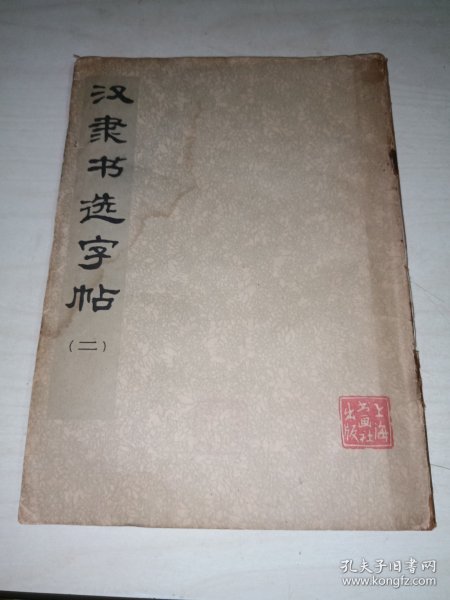 汉隶书选字帖
（二）
上海
书画社
出版
孔夫子旧书网
www.kongfz.com